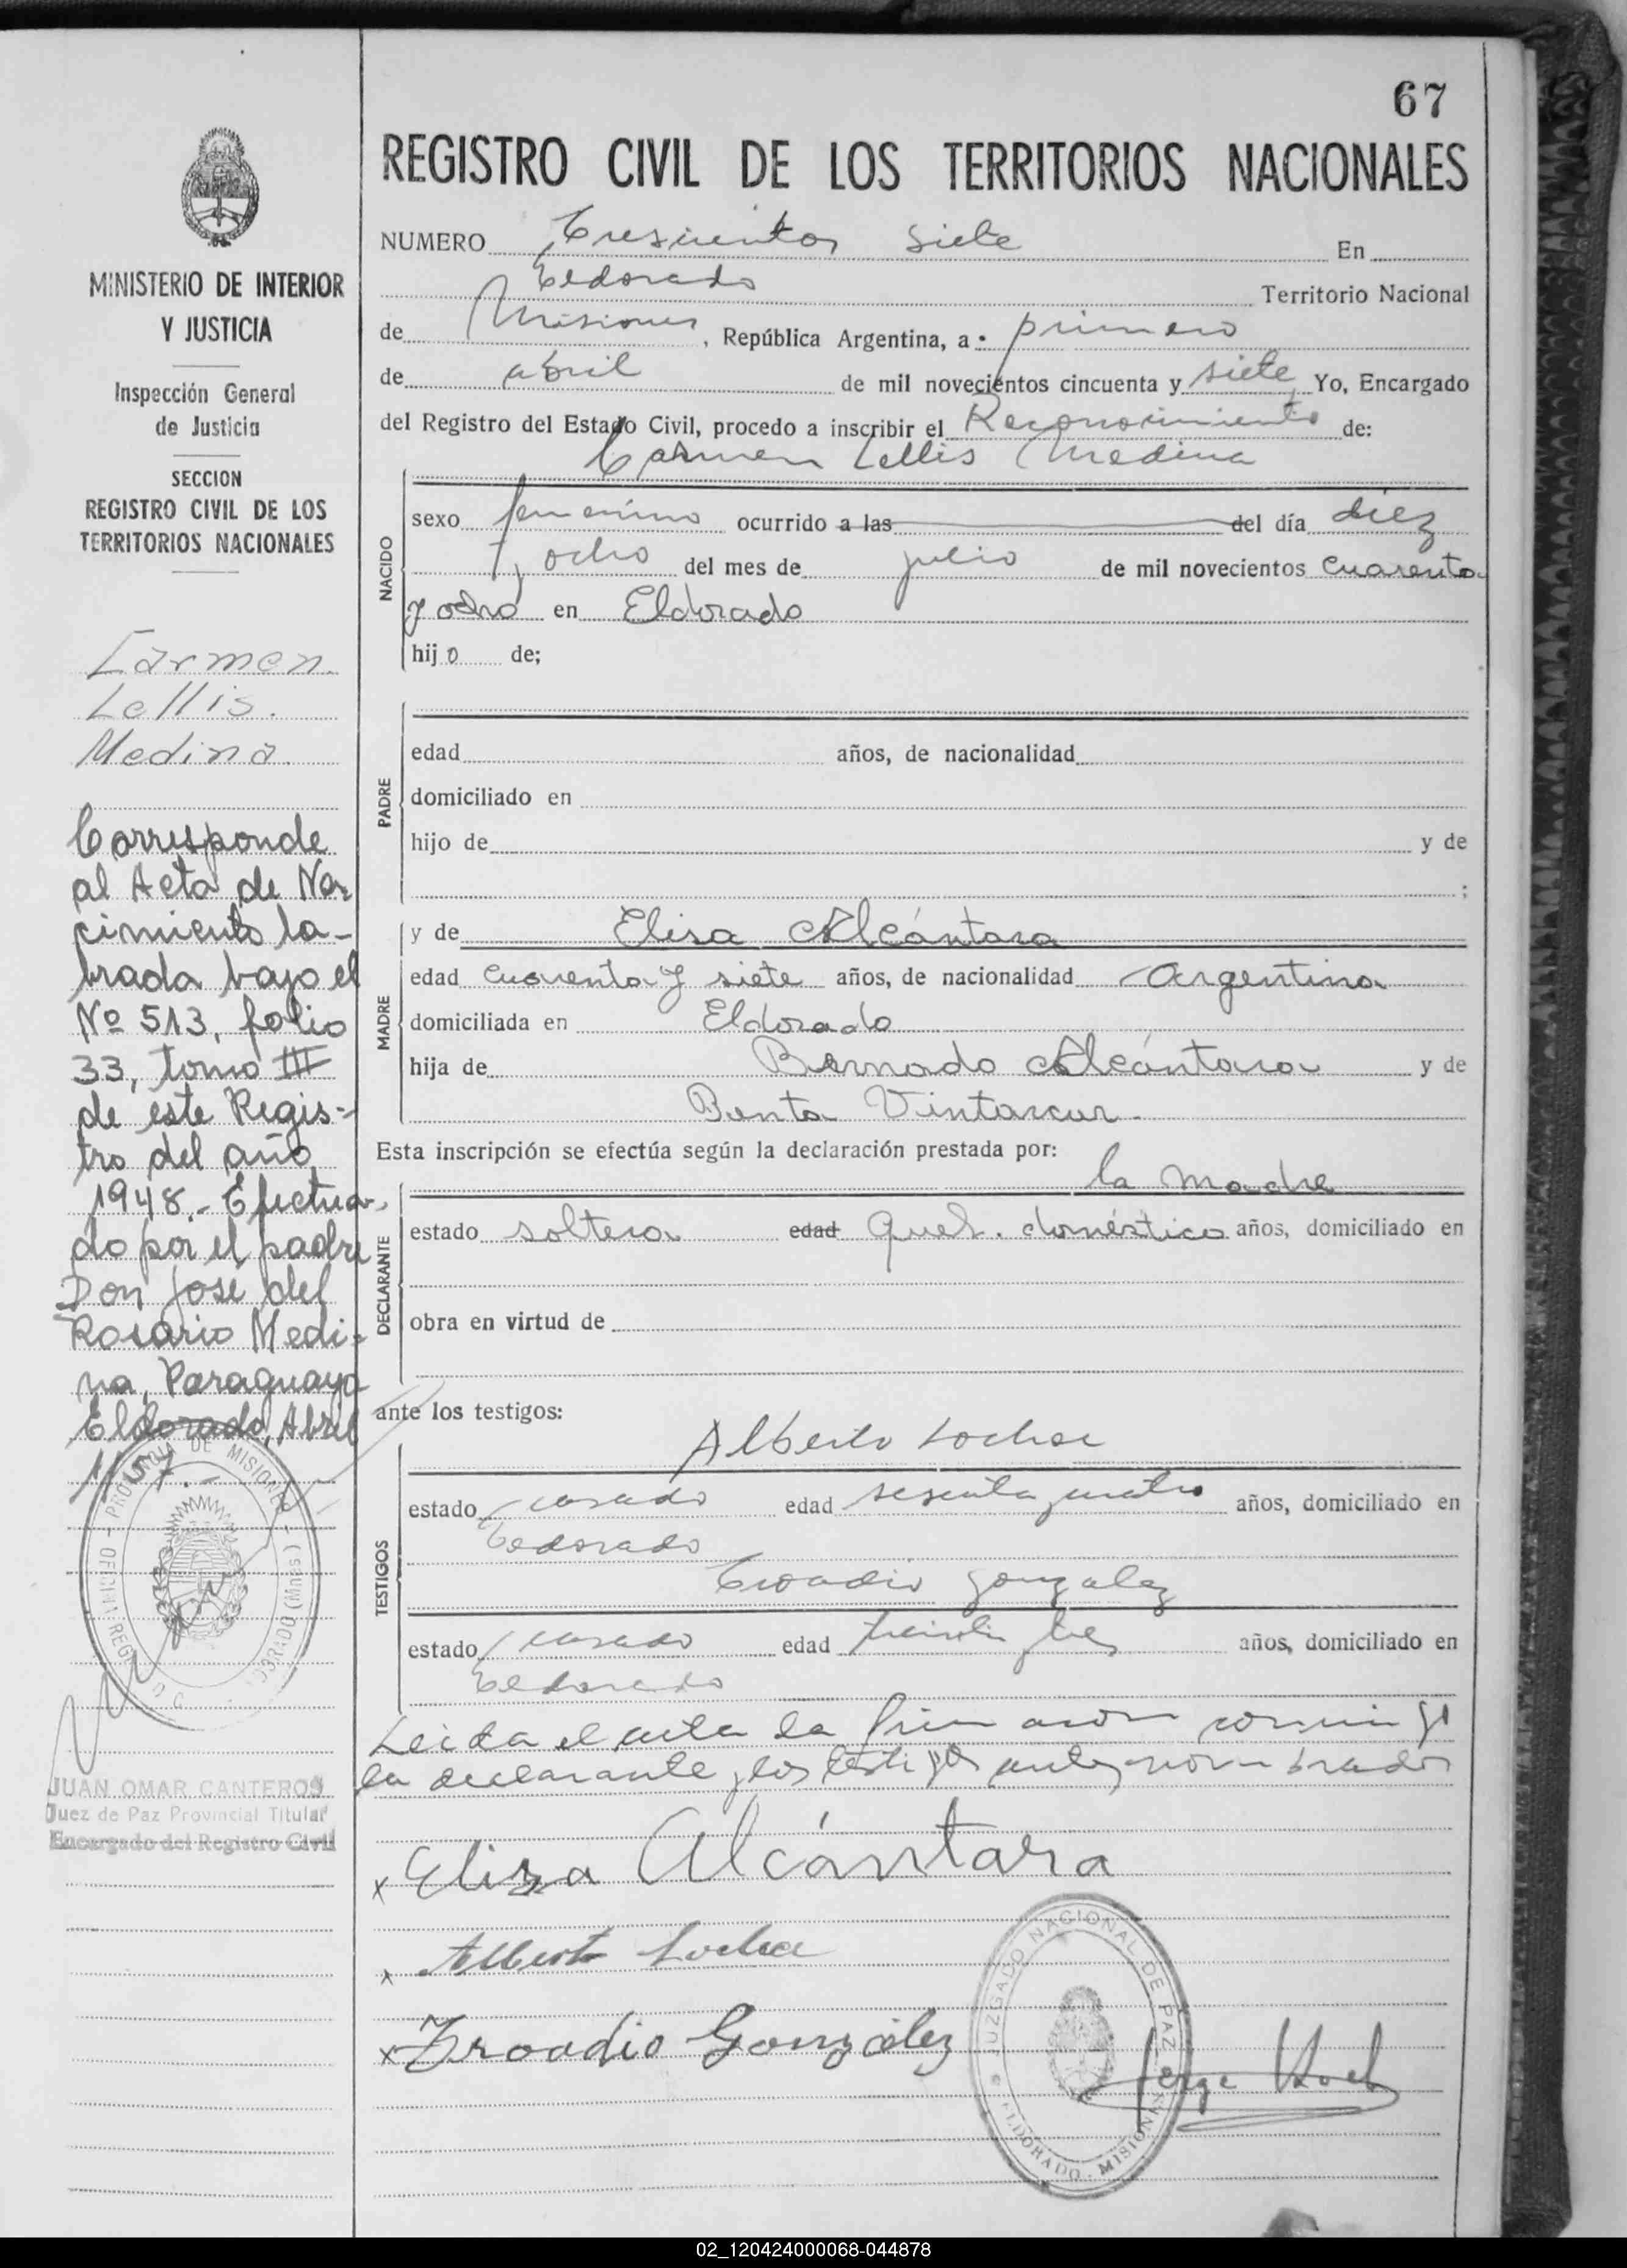 67
REGISTRO CIVIL DE LOS TERRITORIOS NACIONALES
MINISTERIO DE INTERIOR
Y JUSTICIA
Inspección General
de Justicia
SECCION
REGISTRO CIVIL DE LOS
TERRITORIOS NACIONALES
Carmen
Lellis.
Medina.
Corresponde
al Acta de Na
cimiento la-
brada bajo el
Nº 513, folio
33, tomo III
de este Regis-
tro del año
1948.- Efectua-
do por el padre
Don José del
Rosario Medi-
na, Paraguayo
Eldorado, Abril
PROVINCIA DE MISIONES
JUAN OMAR CANTEROS
Juez de Paz Provincial Titular
Encargado del Registro Civil
NUMERO Trescientos siete En
Eldorado Territorio Nacional
de Misiones, República Argentina, a primero
de abril de mil novecientos cincuenta y siete Yo, Encargado
del Registro del Estado Civil, procedo a inscribir el Reconocimiento de:
Carmen Lellis Medina
NACIDO
sexo femenino ocurrido a las del día diez
y ocho del mes de julio de mil novecientos cuarenta
y ocho en Eldorado
hijo de;
PADRE
edad años, de nacionalidad
domiciliado en
hijo de y de
;
MADRE
y de Elisa Alcántara
edad cuarenta y siete años, de nacionalidad Argentina
domiciliada en Eldorado
hija de Bernado Alcántara y de
Benta
Esta inscripción se efectúa según la declaración prestada por:
la madre
DECLARANTE
estado soltera edad Queh. doméstico años, domiciliado en
obra en virtud de
ante los testigos:
TESTIGOS
Alberto Locher
estado casado edad sesenta y cuatro años, domiciliado en
Eldorado
González
estado casado edad treinta y tres años, domiciliado en
Eldorado
Leida el acta la firmaron conmigo
la declarante y los testigos antes nombrados
x Eliza Alcántara
x Alberto Locher
x González
JUZGADO NACIONAL DE PAZ
ELDORADO - MISIONES
Jorge
02_120424000068-044878